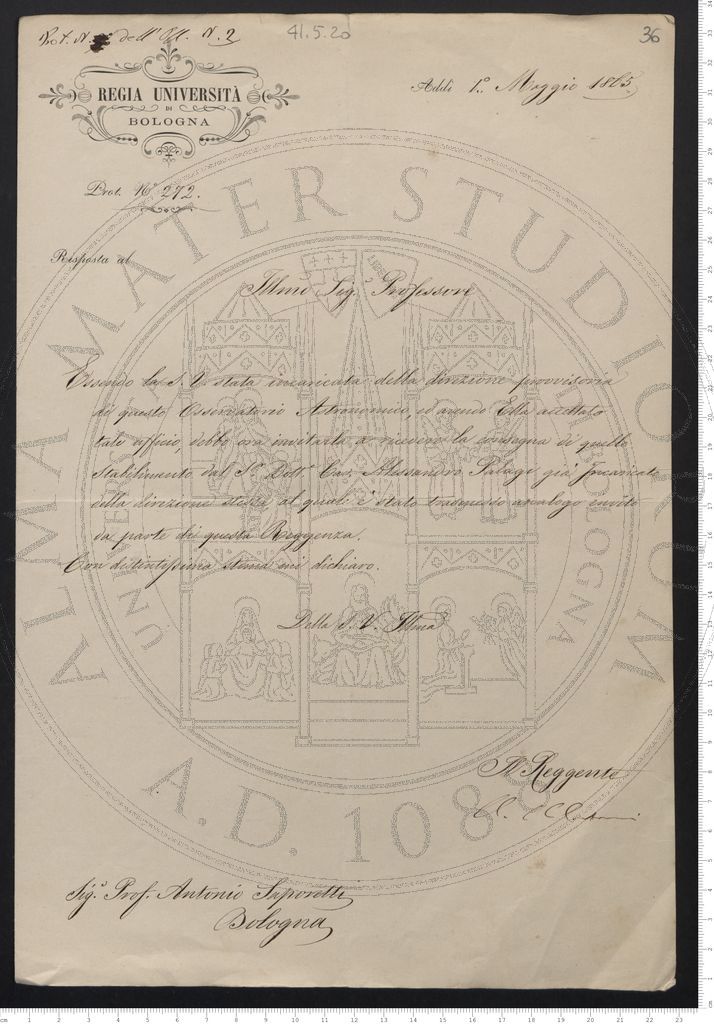 Prot. N. dell' Oss. N. 2
41.5.20
36
REGIA UNIVERSITÀ
DI
BOLOGNA
Addì 1.° Maggio 1865.
Prot. N.° 272.
Risposta al
Illmo Sig.r Professore
Essendo la S. V. stata incaricata della direzione provvisoria
di questo Osservatorio Astronomico, ed avendo Ella accettato
tale officio, debbo ora invitarla a ricevere la consegna di quello
Stabilimento dal Sr. Dott.r Cav. Alessandro Palagi già Incaricato
della direzione stessa al quale è stato trasmesso analogo invito
da parte di questa Reggenza.
Con distintissima stima mi dichiaro.
Della S. V. Illma
Il Reggente
Sig.r Prof. Antonio Saporetti
Bologna
ALMA MATER STUDIORUM
A.D. 1088